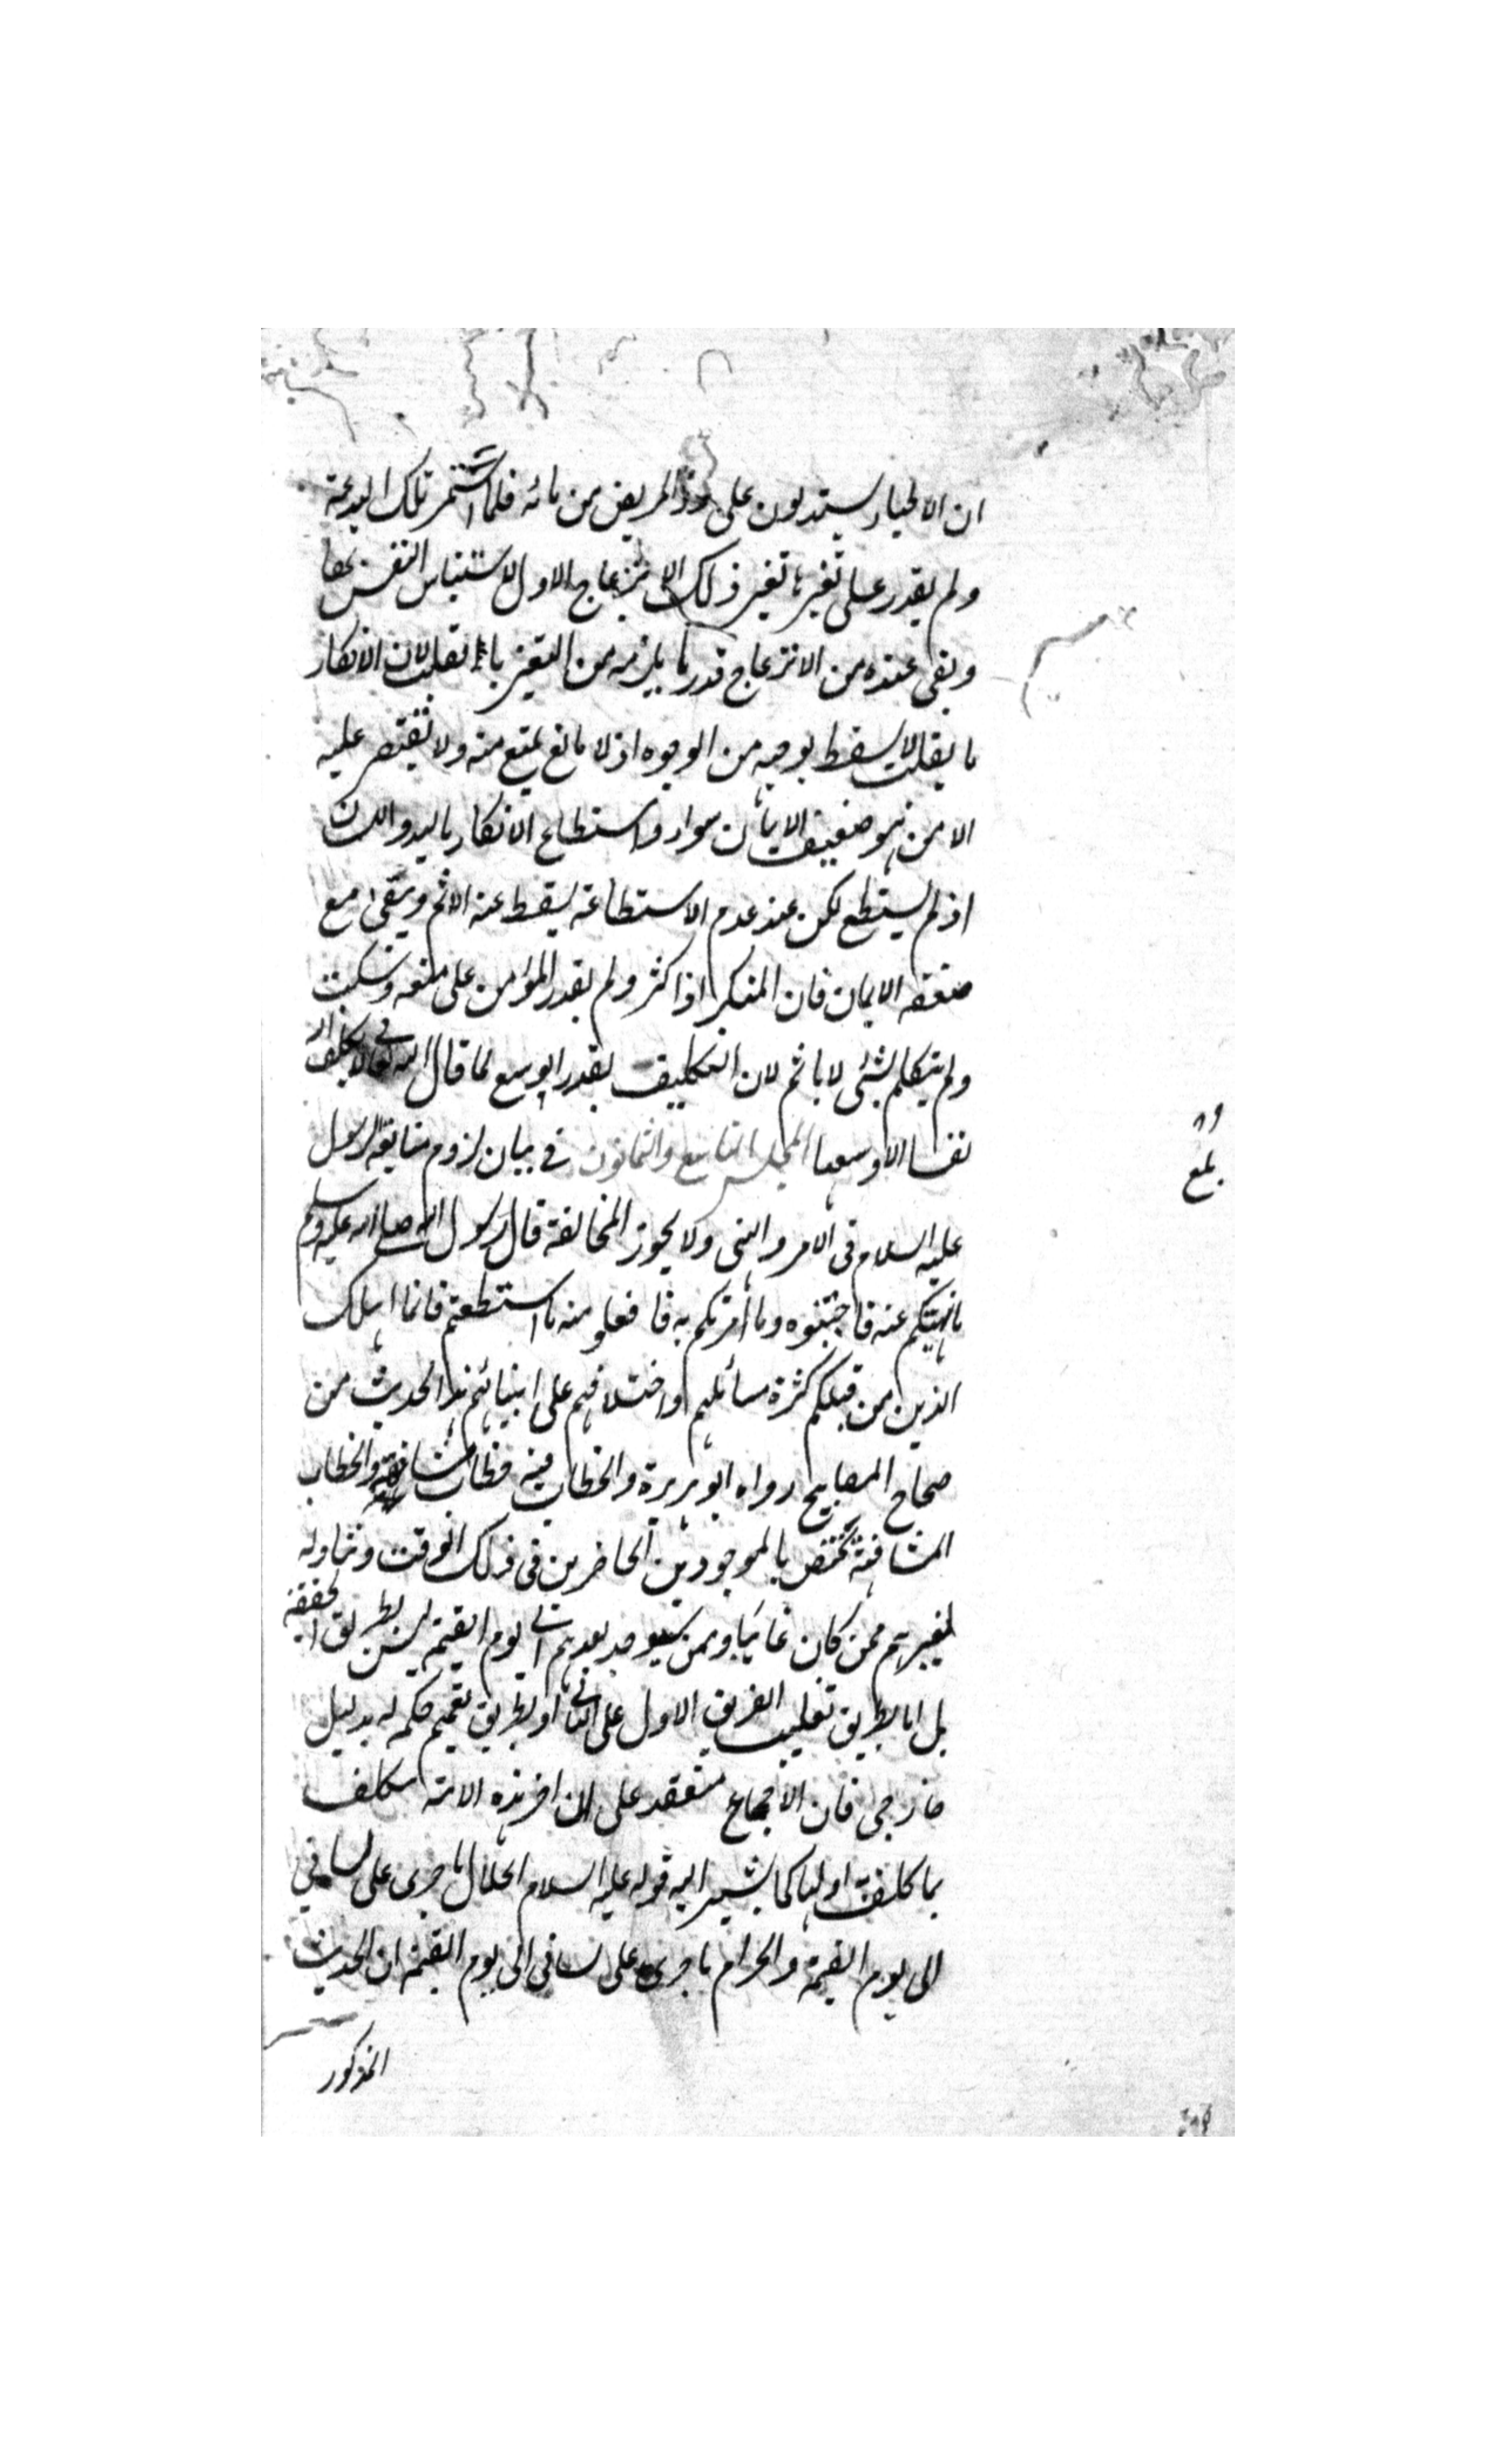 ان الاطباء يستدلون على المريض من مائه فلما استمر تلك البدعة
ولم يقدر على تغييرها تغير ذلك الانزعاج الاول لاستيناس النفس بها
وبقى عنده من الانزعاج قدر ما يلزمه من التغير بالقلب لان الانكار
بالقلب لا يسقط بوجه من الوجوه اذ لا مانع يمنع منه ولا يقتصر عليه
الا من هو ضعيف الايمان سواء استطاع الانكار باليد واللسان
اذ لم يستطع لكن عند عدم الاستطاعة يسقط عنه الاثم ويبقى مع
ضعفه الايمان فان المنكر اذا كثر ولم يقدر المؤمن على منعه وسكت
ولم يتكلم بشئ لا ياثم لان التكليف بقدر الوسع لما قال الله تعالى لا يكلف الله
نفسا الا وسعها المجلس التاسع والثمانون فى بيان لزوم متابعة الرسول
عليه السلام فى الامر والنهى ولا يجوز المخالفة قال رسول الله صلى الله عليه وسلم
ما نهيتكم عنه فاجتنبوه وما أمرتكم به فافعلو منه ما استطعتم فانما اهلك
الذين من قبلكم كثرة مسائلهم واختلافهم على انبيائهم هذا الحديث من
صحاح المصابيح رواه ابو هريرة والخطاب فيه خطاب مشافهة والخطاب
المشافهة يختص بالموجودين الحاضرين فى ذلك الوقت وتناوله
لغيرهم ممن كان غائبا وممن سيوجد بعدهم الى يوم القيمة ليس بطريق الحقيقة
بل اما بطريق تغليب الفريق الاول على الثانى او بطريق تعميم حكمه له بدليل
خارجى فان الاجماع منعقد على ان اخر هذه الامة مكلف
بما كلف به اولها كما يشير اليه قوله عليه السلام الحلال ما جرى على لسانى
الى يوم القيمة والحرام ما جرى على لسانى الى يوم القيمة ان الحديث
المذكور
٨٩
بلغ